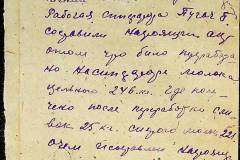 Рабочая сепаратора Пугач
составили настоящий акт
о том что было переработа
но. на сепараторе молока
цельного 246 кг. где пол
учено после переработки сли
вок 25 кг. снятого мол. 221
о чем и составлен настоящ